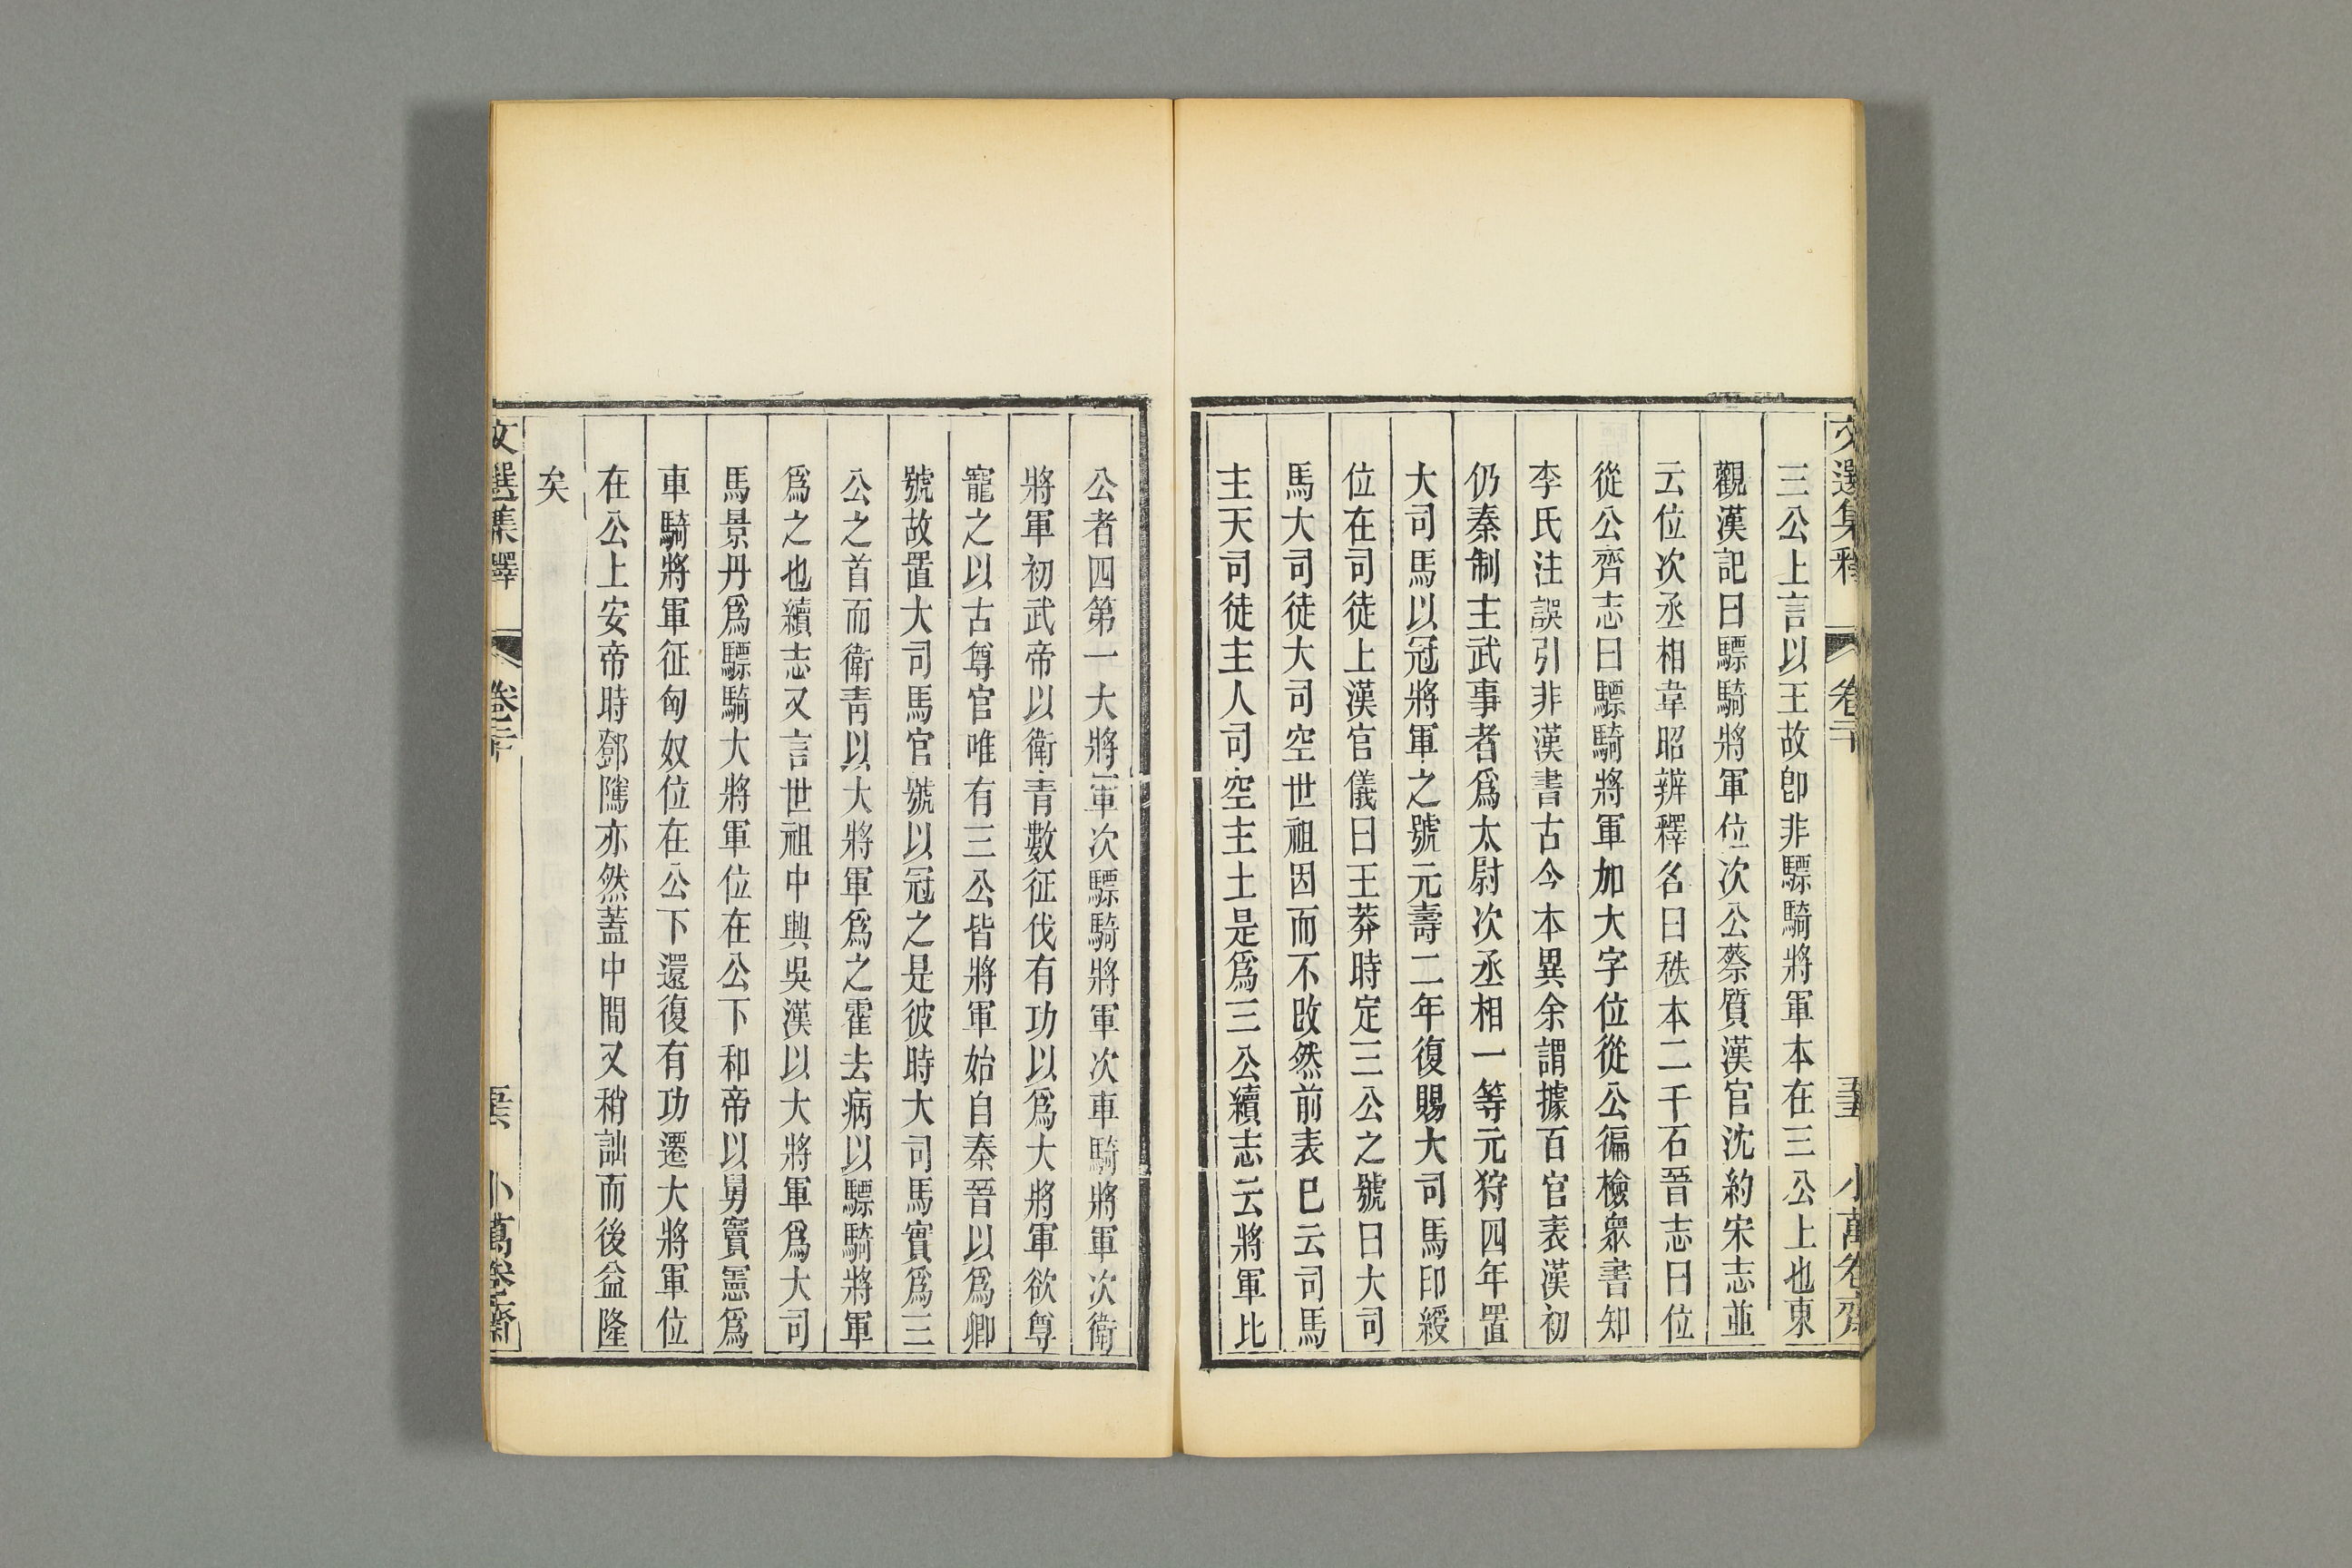 文選集釋 卷二十 五五 小萬卷齋
三公上言以王故卽非驃騎將軍本在三公上也東
觀漢記曰驃騎將軍位次公蔡質漢官沈約宋志並
云位次丞相韋昭辨釋名曰秩本二千石晉志曰位
從公齊志曰驃騎將軍加大字位從公徧檢衆書知
李氏注誤引非漢書古今本異余謂據百官表漢初
仍秦制主武事者爲太尉次丞相一等元狩四年置
大司馬以冠將軍之號元壽二年復賜大司馬印綬
位在司徒上漢官儀曰王莽時定三公之號曰大司
馬大司徒大司空世祖因而不改然前表已云司馬
主天司徒主人司空主土是爲三公續志云將軍比
公者四第一大將軍次驃騎將軍次車騎將軍次衛
將軍初武帝以衛青數征伐有功以爲大將軍欲尊
寵之以古尊官唯有三公皆將軍始自秦晉以爲卿
號故置大司馬官號以冠之是彼時大司馬實爲三
公之首而衛靑以大將軍爲之霍去病以驃騎將軍
爲之也續志又言世祖中興吳漢以大將軍爲大司
馬景丹爲驃騎大將軍位在公下和帝以舅竇憲爲
車騎將軍征匈奴位在公下還復有功遷大將軍位
在公上安帝時鄧隲亦然蓋中間又稍詘而後益隆
矣
文選集釋 卷二十 小萬卷齋